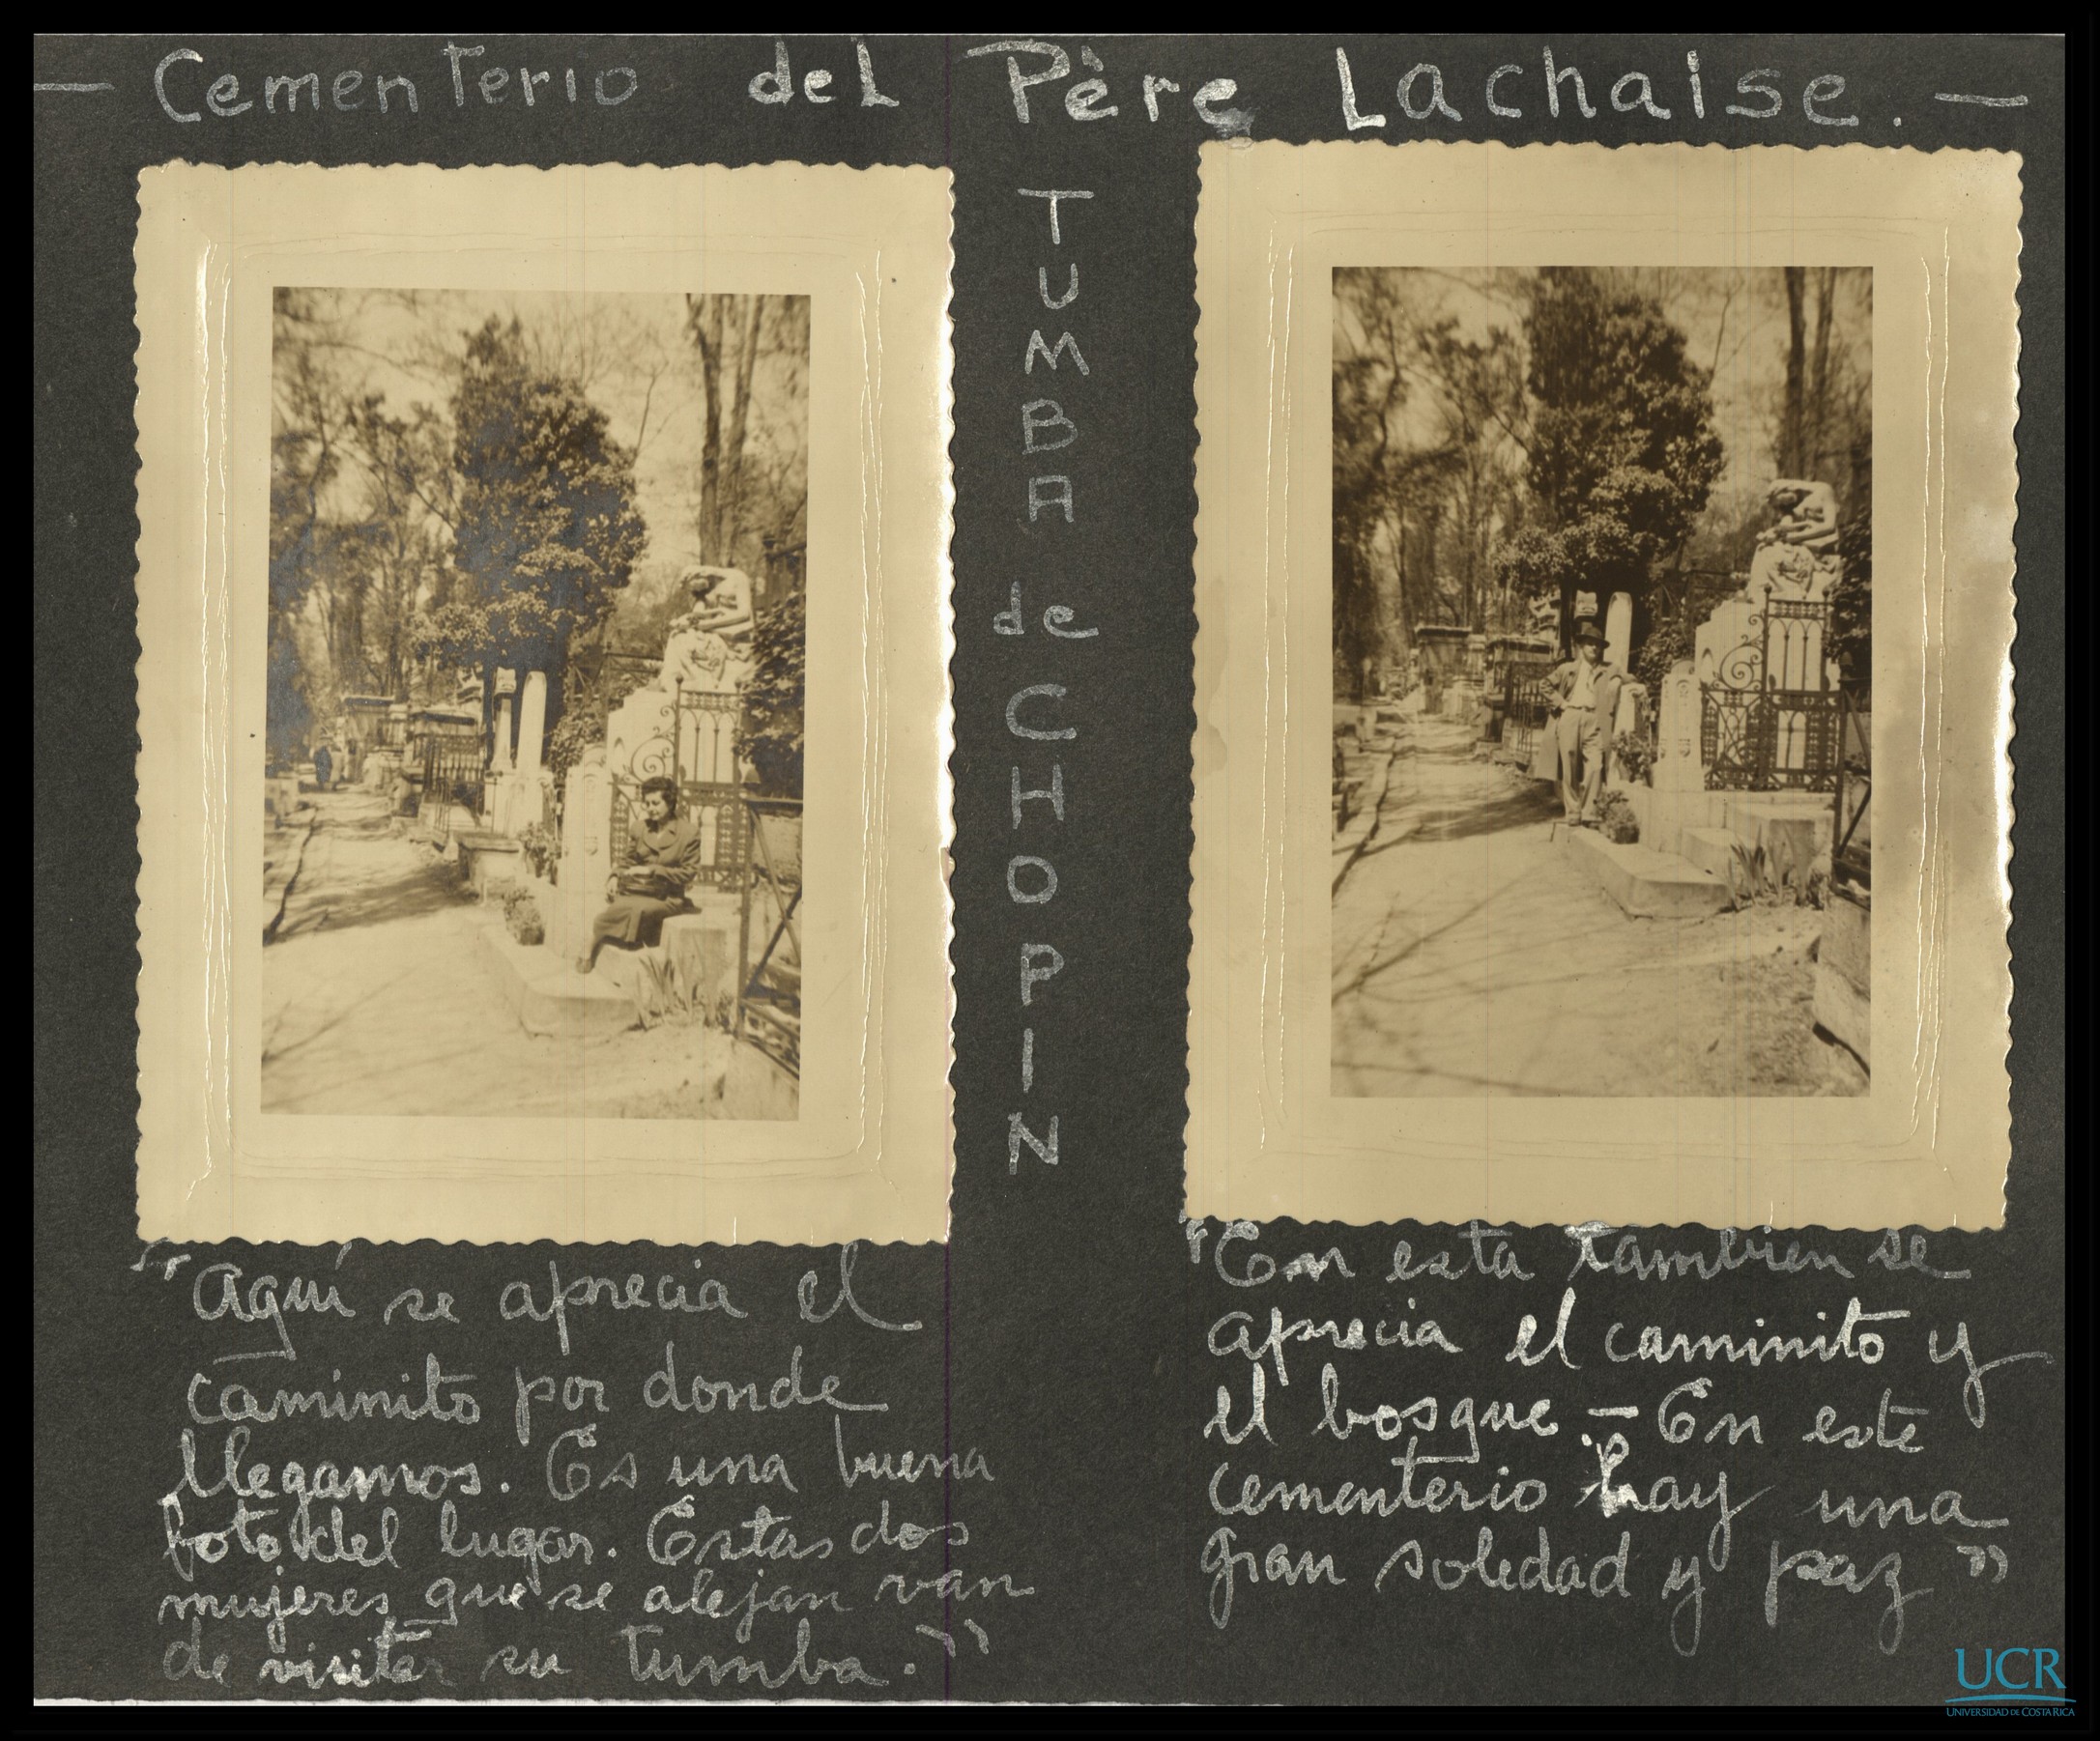 — Cementerio del Père Lachaise. —
TUMBA de CHOPIN
"Aquí se aprecia el
caminito por donde
llegamos. Es una buena
foto del lugar. Estas dos
mujeres que se alejan van
de visitar su tumba."
"En esta tambien se
aprecia el caminito y
el bosque — En este
cementerio hay una
gran soledad y paz"
UCR
UNIVERSIDAD DE COSTA RICA